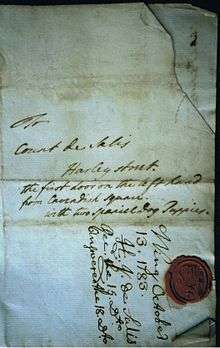 To
Count de Salis
Harley street
the first door on the left hand
from Cavendish Square
with two Spaniel Dog Puppies.
October
13. 1783.
de Salis
Rec. the 15 Do
the 18 Do